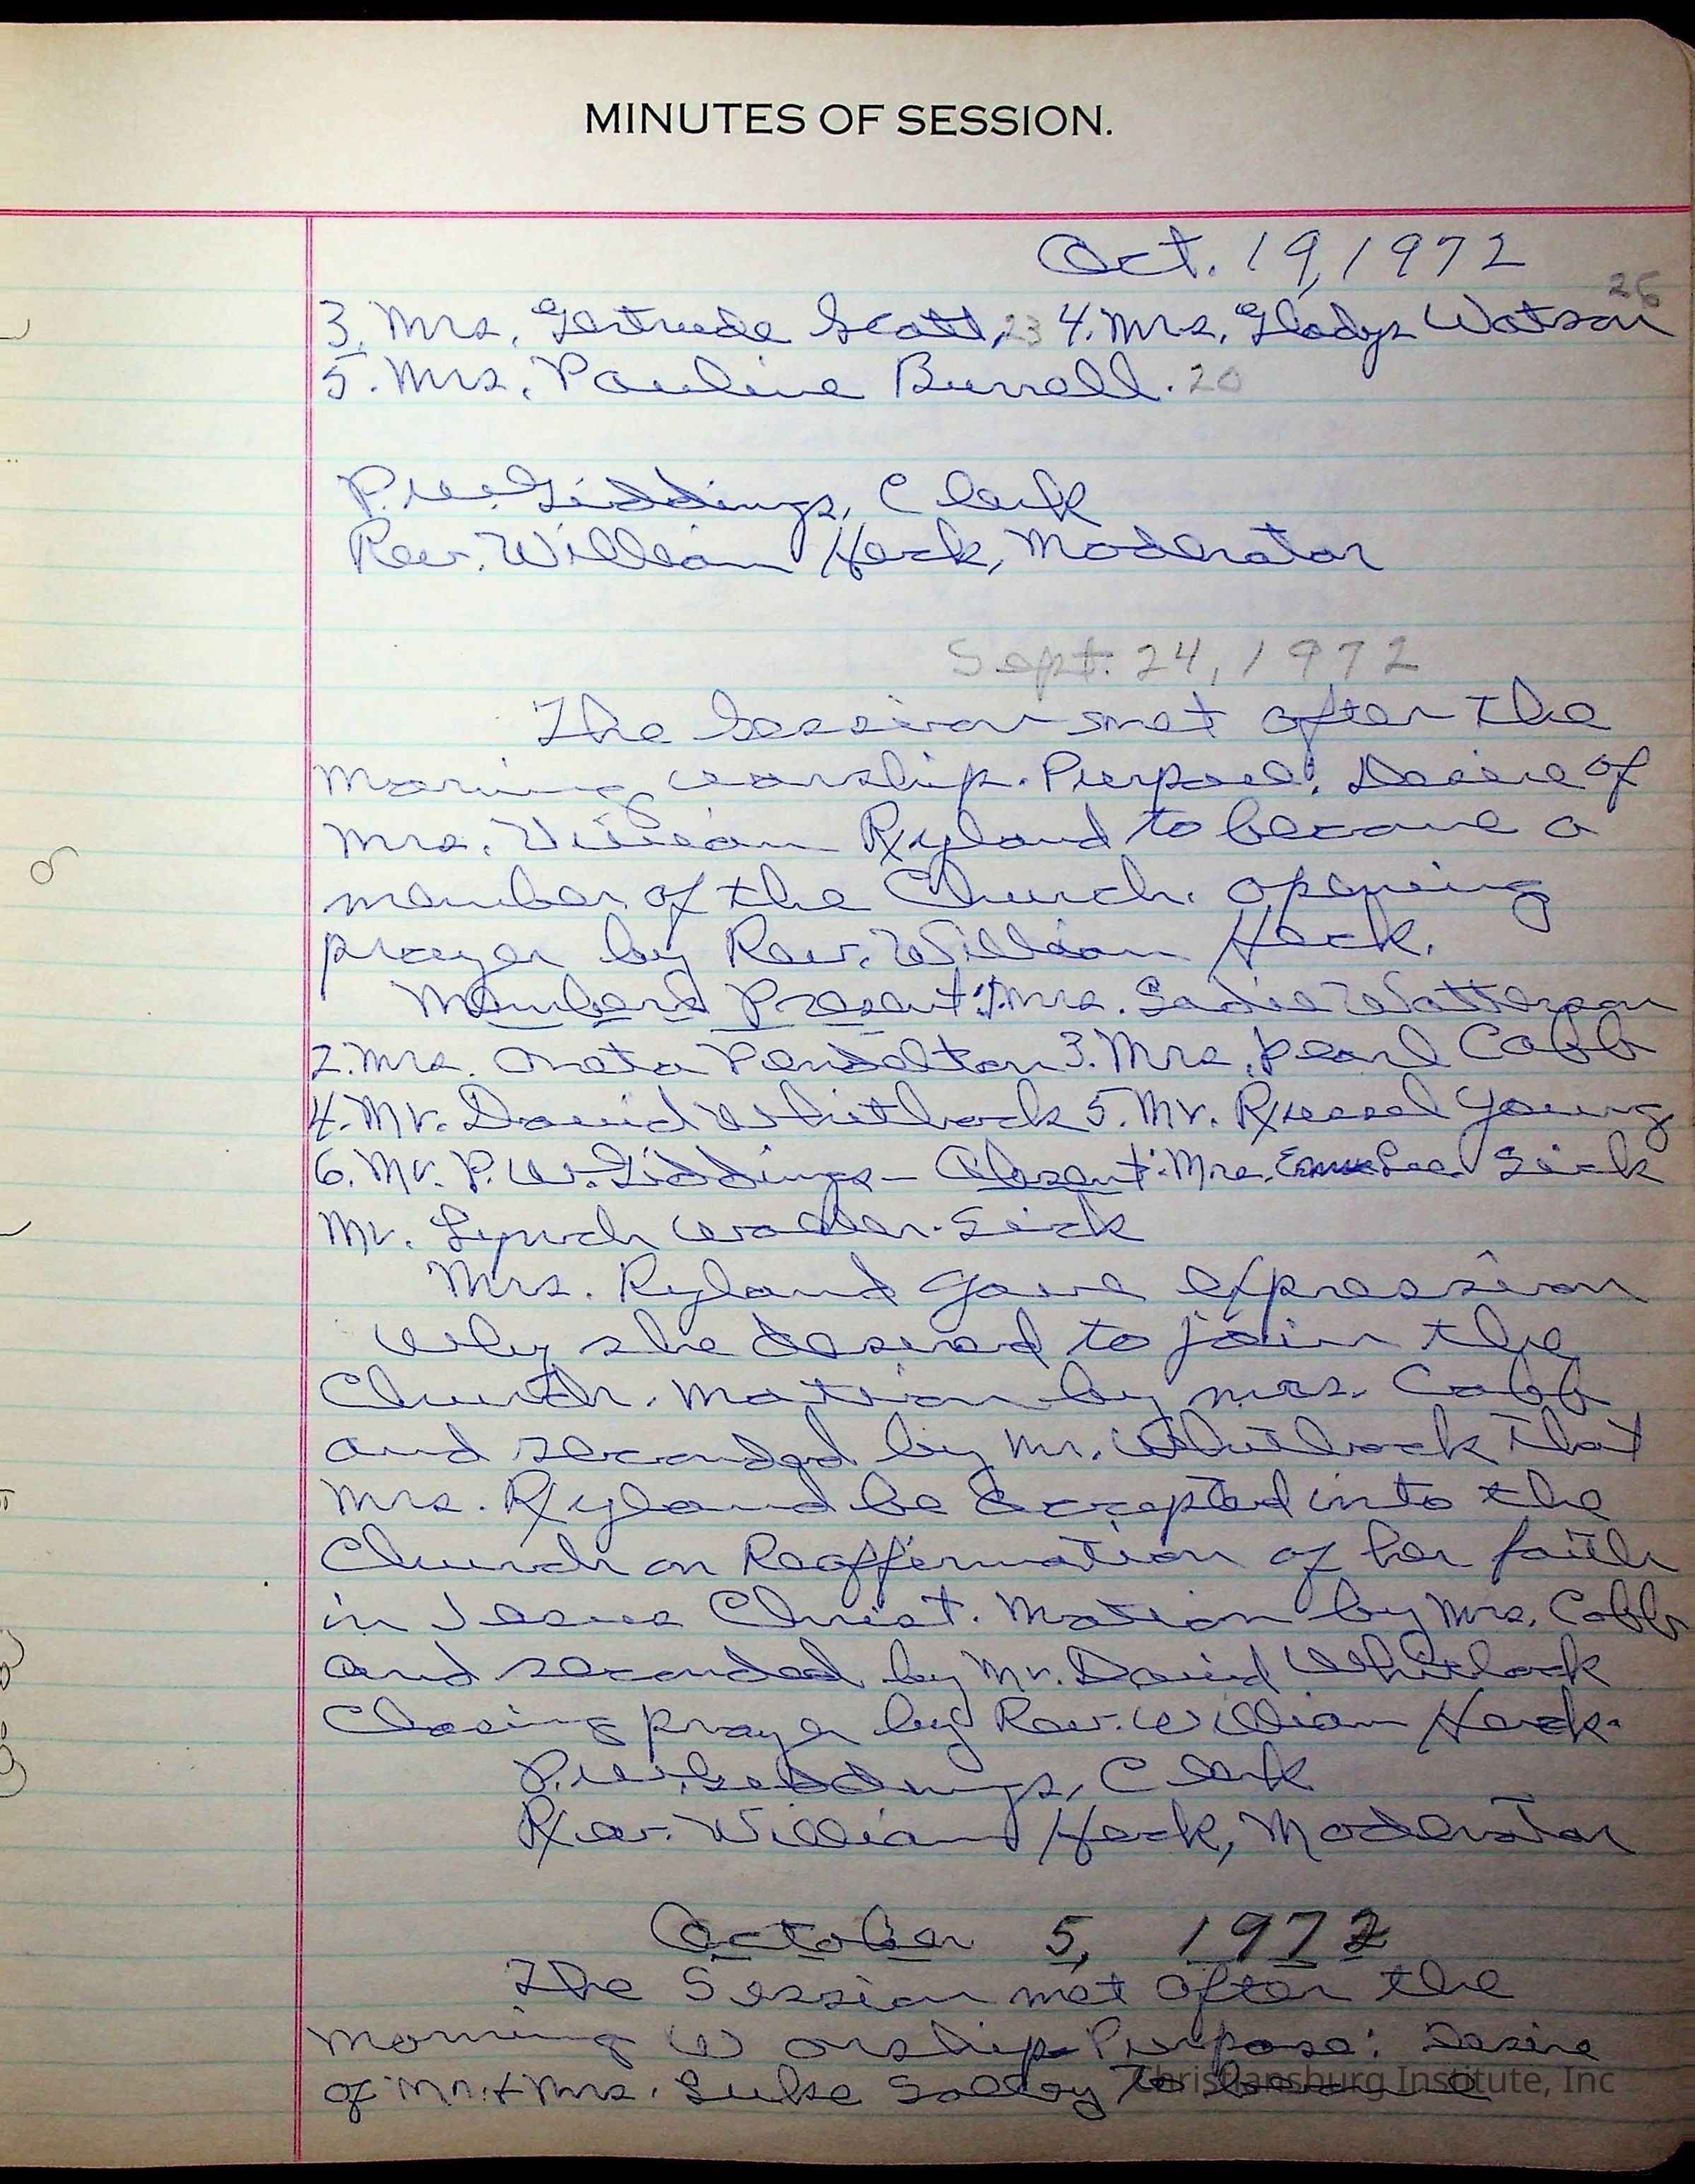 MINUTES OF SESSION.
Oct. 19, 1972
3. Mrs. Gertrude Scott, 23 4. Mrs. Gladys Watson 26
5. Mrs. Pauline Burrell. 20
P. W. Giddings, Clerk
Rev. William Heck, Moderator
Sept. 24, 1972
The Session met after the
morning worship. Purpose: Desire of
Mrs. Ryland to become a
member of the Church. Opening
prayer by Rev. William Heck.
Members Present: 1. Mrs. Sadie Watterson
2. Mrs. Oneta Pendelton 3. Mrs. Pearl Cobb
4. Mr. David Whitlock 5. Mr. Russel Young
6. Mr. P. W. Giddings - Absent: Mrs. Lee Sick
Mr. Lynch Waller - Sick
Mrs. Ryland gave expression
why she desired to join the
Church. Motion by Mrs. Cobb
and seconded by Mr. Whitlock that
Mrs. Ryland be accepted into the
Church on Reaffirmation of her faith
in Jesus Christ. Motion by Mrs. Cobb
and seconded by Mr. David Whitlock
Closing prayer by Rev. William Heck.
P. W. Giddings, Clerk
Rev. William Heck, Moderator
October 5, 1972
The Session met after the
morning Worship Purpose: Desire
of Mr. & Mrs. Luke to become a
Christiansburg Institute, Inc